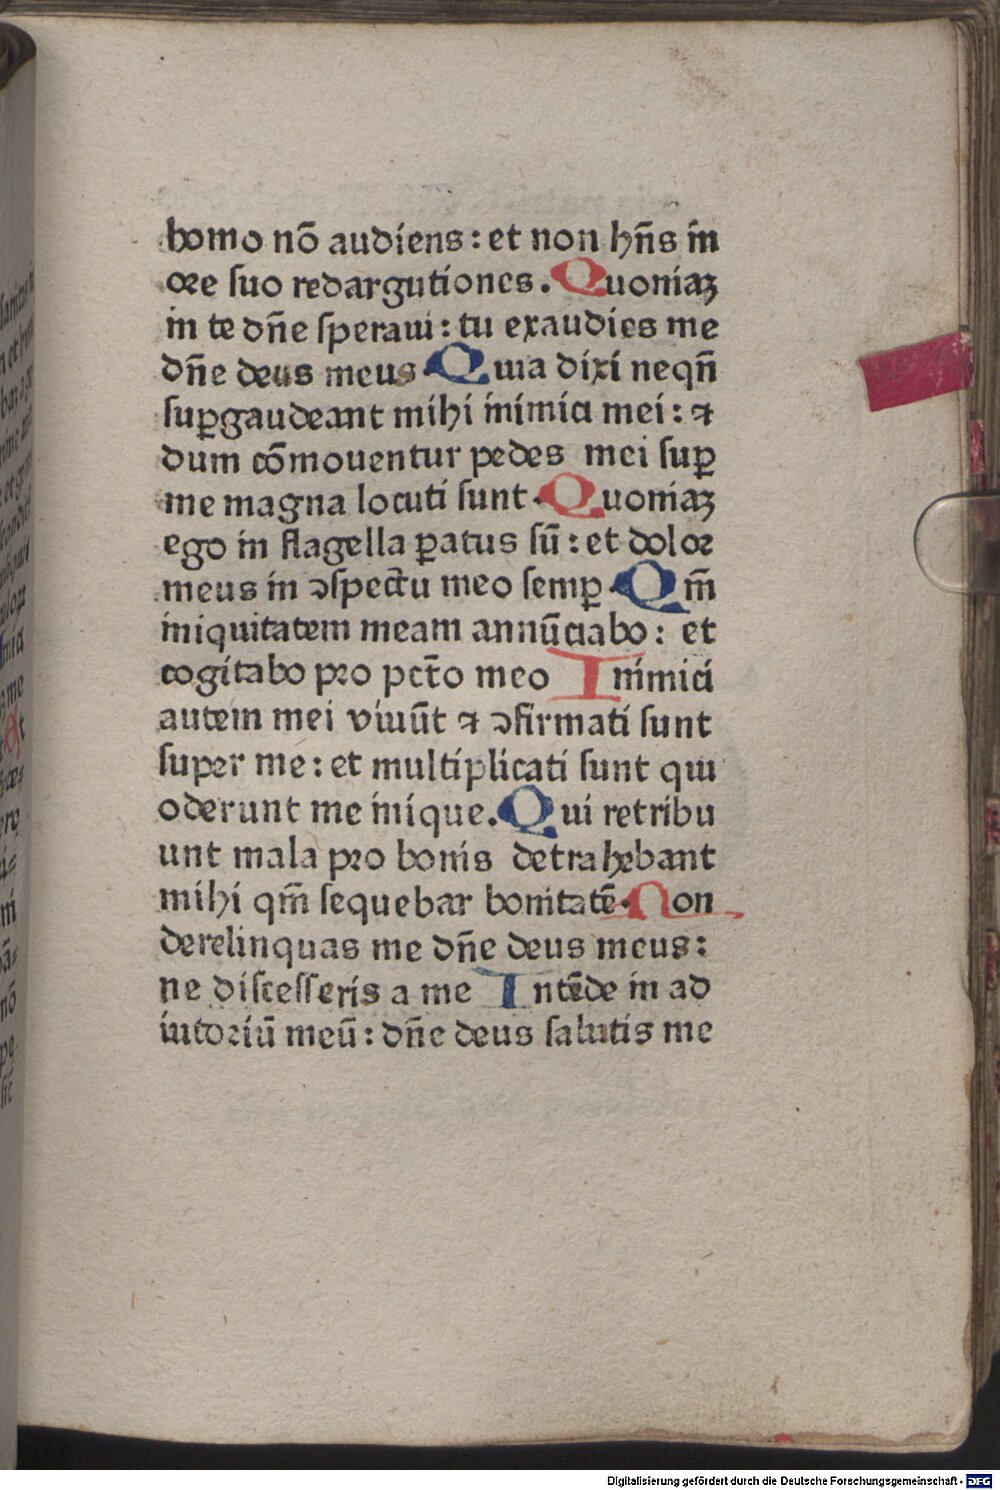 homo nō audiens: et non hn̄s in
ore suo redargutiones. Quoniaz
in te dn̄e speraui: tu exaudies me
dn̄e deus meus Quia dixi neqn̄
sup̱gaudeant mihi inimici mei: ⁊
dum cōmouentur pedes mei sup̱
me magna locuti sunt. Quoniaz
ego in flagella p̱atus sū: et dolor
meus in ꝯspectu meo semp̱. Qm̄
iniquitatem meam annūciabo: et
cogitabo pro pct̄o meo Inimici
autem mei viuūt ⁊ ꝯfirmati sunt
super me: et multiplicati sunt qui
oderunt me inique. Qui retribu
unt mala pro bonis detrahebant
mihi qm̄ sequebar bonitatē. Non
derelinquas me dn̄e deus meus:
ne discesseris a me Intēde in ad
iutoriū meū: dn̄e deus salutis me
Digitalisierung gefördert durch die Deutsche Forschungsgemeinschaft - DFG